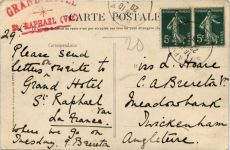 GRAND HOTEL
ST RAPHAEL (Var)
CARTE POSTALE
Correspondance
29
Please send
letters on & write to
Grand Hotel
St Raphael
Var
La France.
Where we go on
Tuesday. F. Brereton
20
Mrs J. Hoare
C. A. Brereton Esq
Meadowbank
Twickenham
Angleterre.
5
5